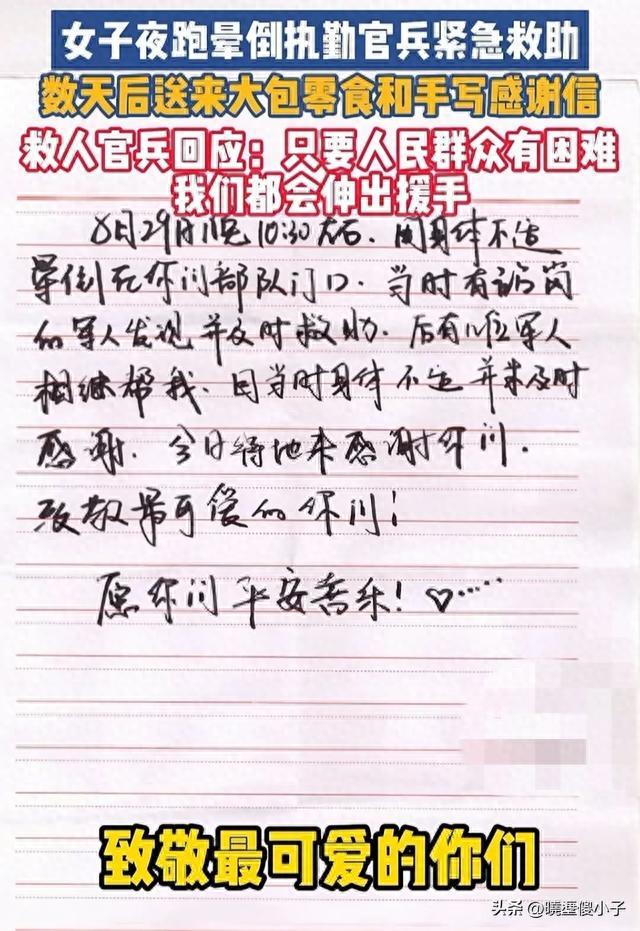 女子夜跑晕倒执勤官兵紧急救助
数天后送来大包零食和手写感谢信
救人官兵回应：只要人民群众有困难
我们都会伸出援手
8月29日晚10:30左右.因身体不适
晕倒在你们部队门口.当时有站岗
的军人发现并及时救助.后有几位军人
相继帮我.因当时身体不适并未及时
感谢.今日特地来感谢你们.
致敬最可爱的你们!
愿你们平安喜乐!♡……
致敬最可爱的你们
头条 @曉堊傻小子